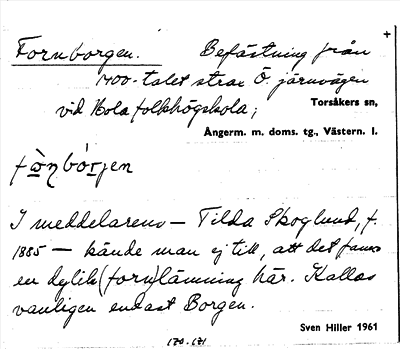 +
Fornborgen. Befästning från
1400-talet strax Ö. järnvägen
vid Hola folkhögskola;
Torsåkers sn,
Ångerm. m. doms. tg., Västern. l.
fòɳbórjen
I meddelarens – Tilda Skoglund, f.
1885 – kände man ej till, att det fanns
en dylik (forn)lämning här. Kallas
vanligen endast Borgen.
Sven Hiller 1961